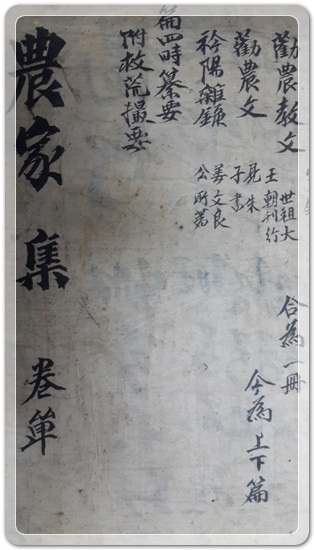 勸農教文
世祖大
王朝刊行
合為一冊
勸農文
見朱
子書
今為上下篇
衿陽雜錄
姜文良
公所著
篇四時纂要
附救荒撮要
農家集 卷單